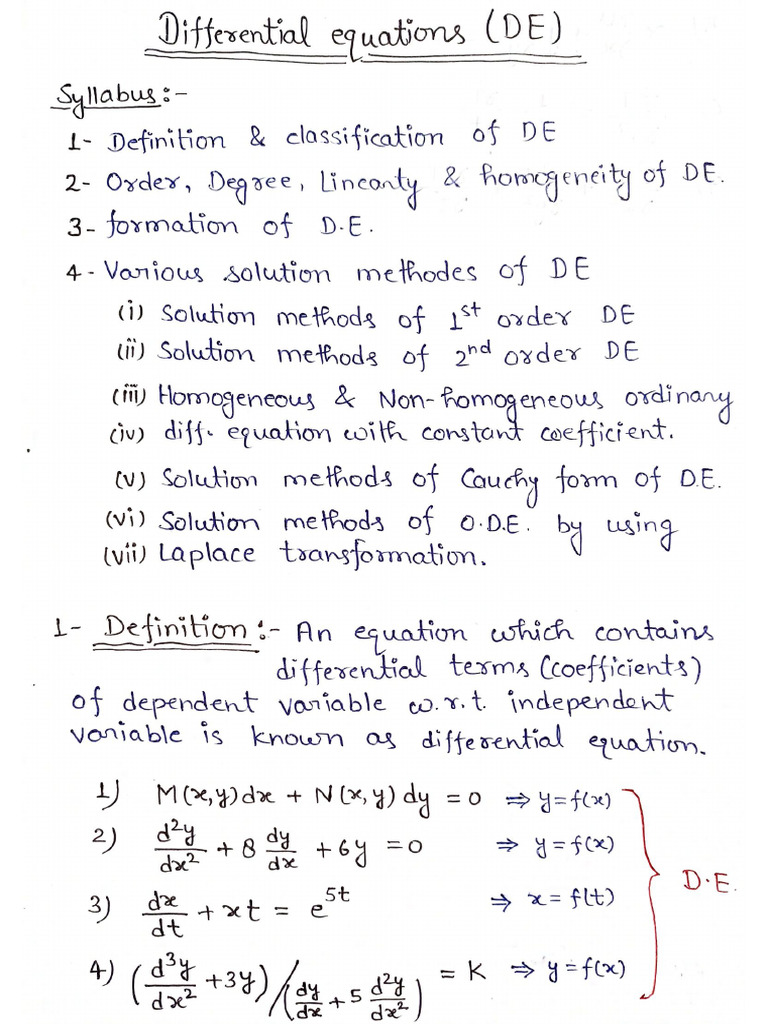 Differential equations (DE)
Syllabus:-
1- Definition & classification of DE
2- Order, Degree, Linearity & homogeneity of DE.
3- formation of D.E.
4- Various solution methodes of DE
(i) Solution methods of 1st order DE
(ii) Solution methods of 2nd order DE
(iii) Homogeneous & Non-homogeneous ordinary
(iv) diff. equation with constant coefficient.
(v) Solution methods of Cauchy form of D.E.
(vi) Solution methods of O.D.E. by using
(vii) Laplace transformation.
1- Definition:- An equation which contains
differential terms (coefficients)
of dependent variable w.r.t. independent
variable is known as differential equation.
1) M(x,y)dx + N(x,y)dy = 0 ⇒ y=f(x)
2) d²y/dx² + 8 dy/dx + 6y = 0 ⇒ y=f(x)
D.E.
3) dx/dt + xt = e^5t ⇒ x = f(t)
4) (d³y/dx² + 3y)/(dy/dx + 5 d²y/dx²) = K ⇒ y=f(x)